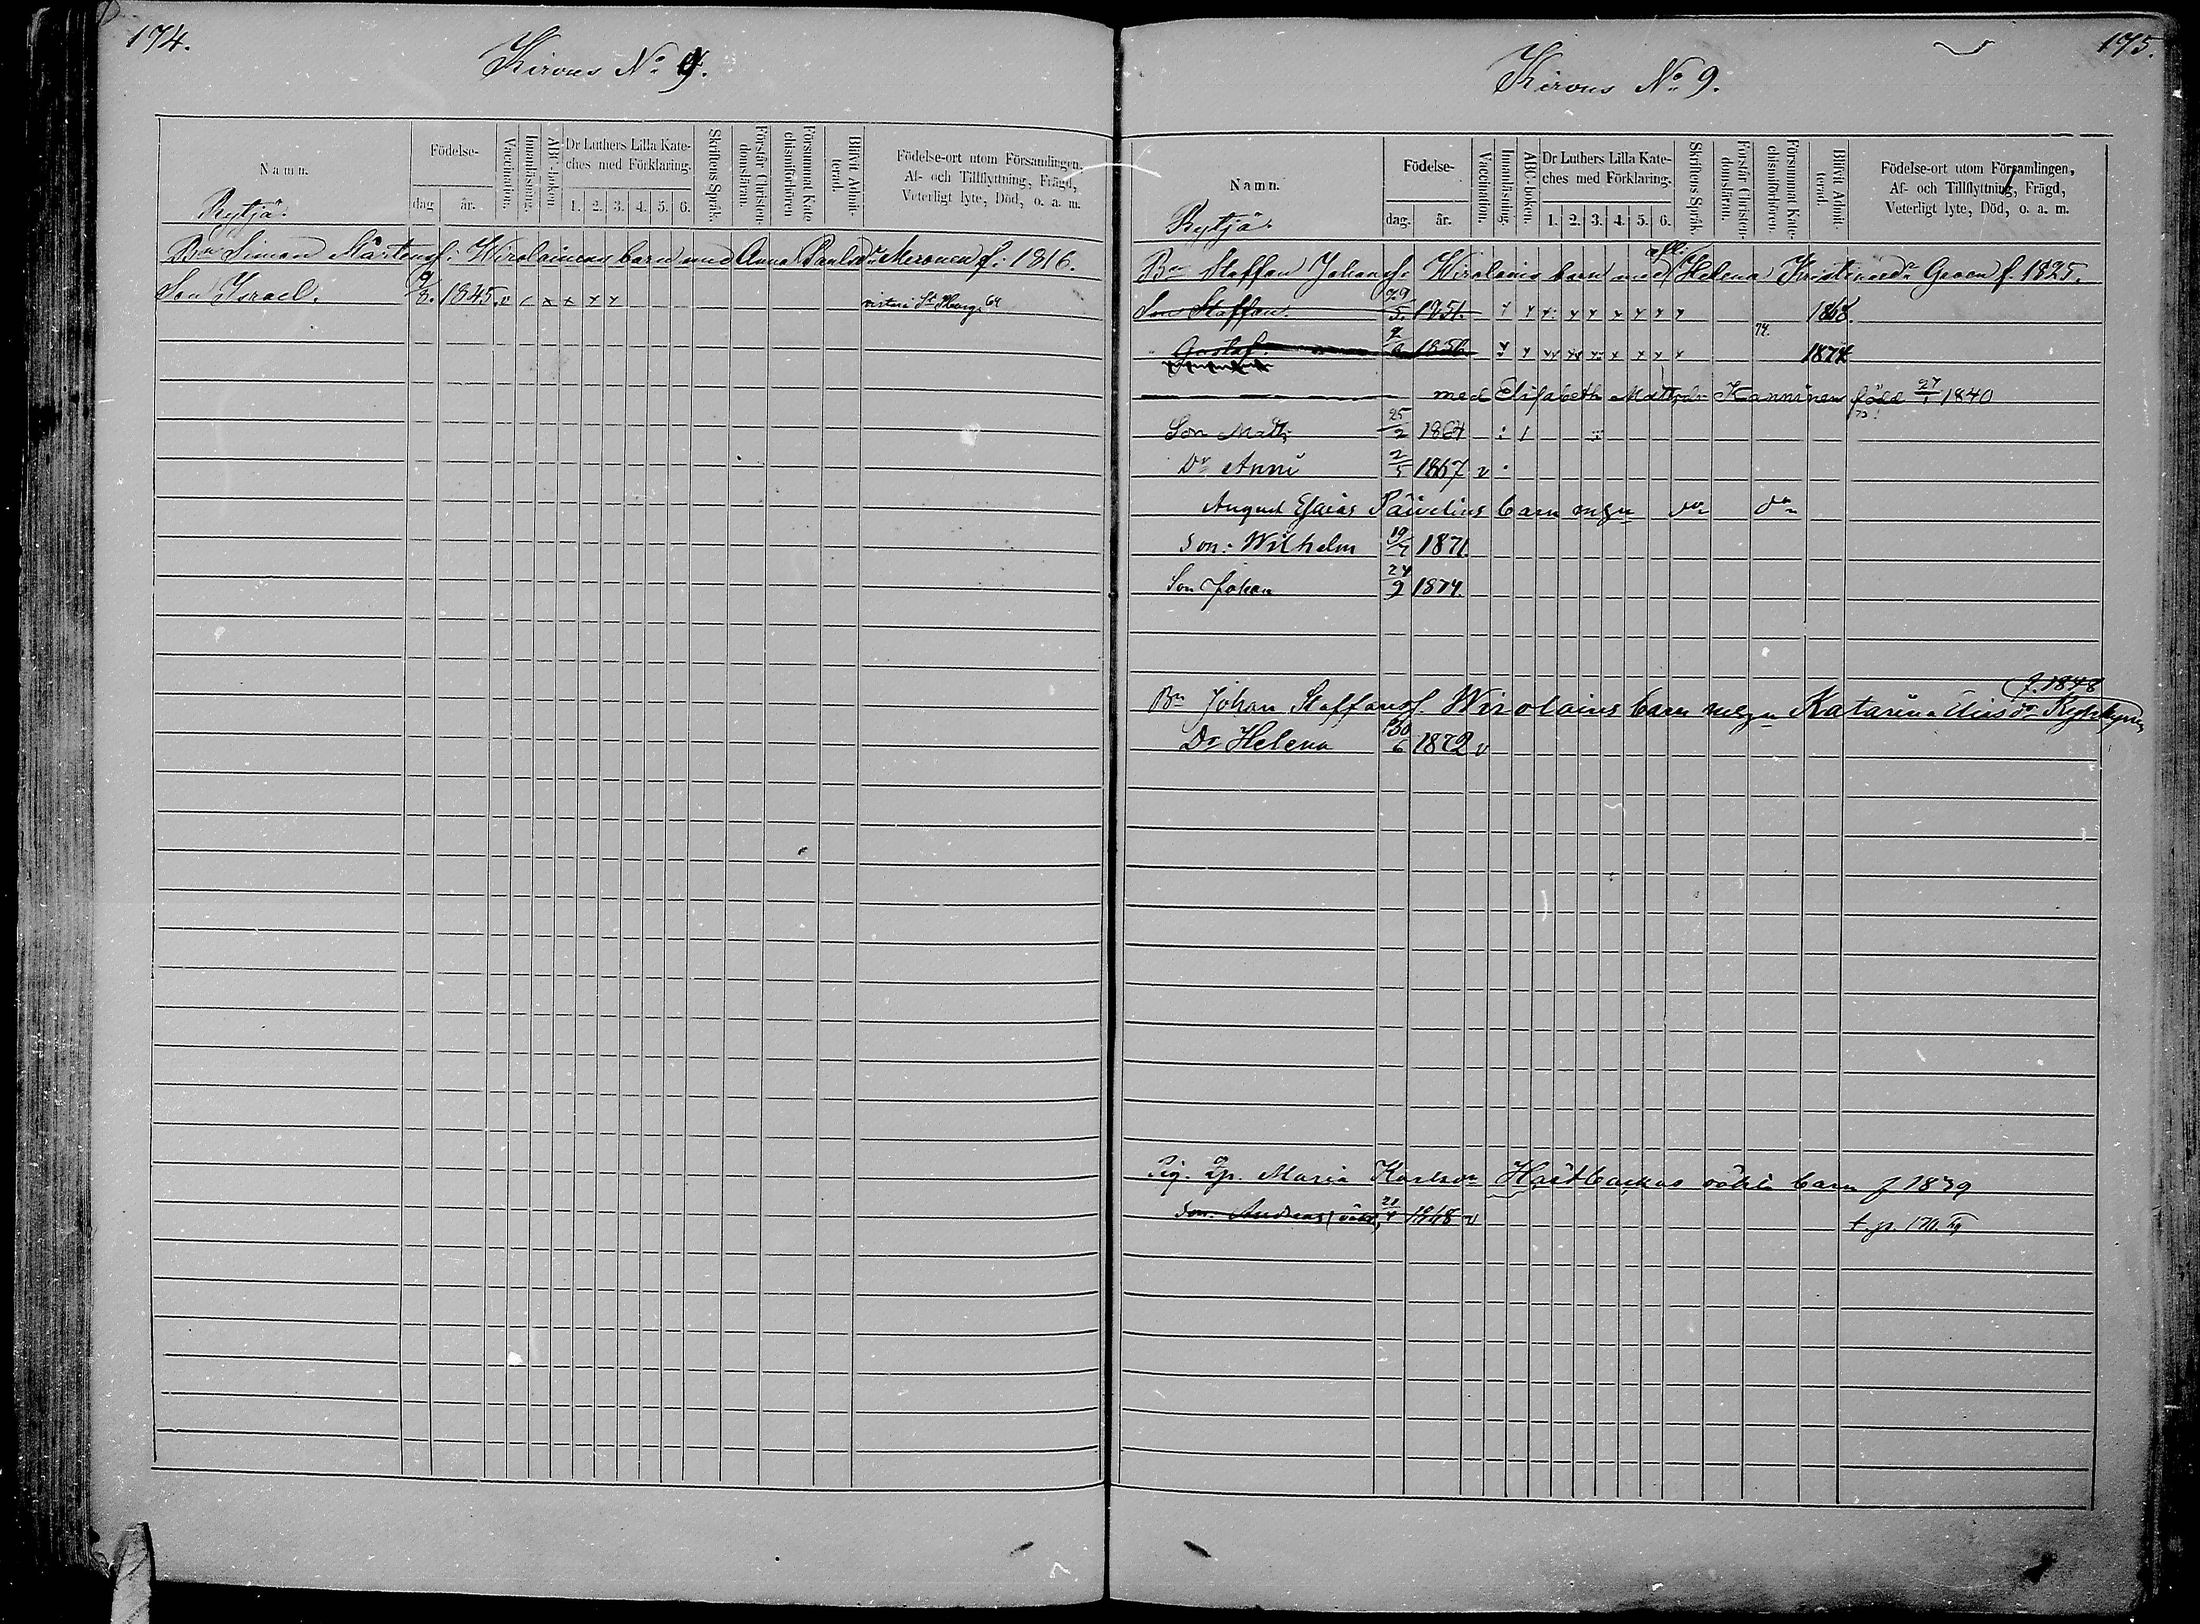 174.
Kirvus No 9.
Namn.
Födelse-
dag
år.
Vaccination.
Innanläsning.
ABC-boken.
Dr Luthers Lilla Kate-
ches med Förklaring.
1. 2. 3. 4. 5. 6.
Skriftens Språk.
Förstår Christen-
domsläran.
Försummat Kate
chismiförhören
Blifvit Admit-
terad.
Födelse-ort utom Församlingen,
Af- och Tillflyttning, Frägd,
Veterligt lyte, Död, o. a. m.
Rytjä.
Bn Simon Mårtenss: Wirolainens barn med Anna Paulsdr Meronen f: 1816.
Son Israel. 1845. v x x x x
175.
Kirvus No 9.
Namn.
Födelse-
dag.
år.
Vaccination.
Innanläsning.
ABC-boken.
Dr Luthers Lilla Kate-
ches med Förklaring.
1. 2. 3. 4. 5. 6.
Skriftens Språk.
Förstår Christen-
domsläran.
Försummat Kate-
chismiförhören.
Blifvit Admit-
terad.
Födelse-ort utom Församlingen,
Af- och Tillflyttning, Frägd,
Veterligt lyte, Död, o. a. m.
Rytjä
Bn Staffan Johanss: Wirolains barn med afl: Helena Kristiansdr f. 1825.
Son Staffan 29/5. 1851. 1868.
Gustaf 1856 74. 1874
med Elisabeth Mattsdr Kanninen född 27/1 1840
Son Matts 25/2 1864
Dr Anni 2/5 1867 v
August Esaias Päivelins barn m gn do do
Son: Wilhelm 19/7 1871
Son Johan 24/9 1874
f. 1848
Bn Johan Staffanss. Wirolains barn m Katarina
Dr Helena 30/6 1872 v
Pig. Maria oäkta barn f 1839
Son Andreas (oäkt) 21/4 1868 v t. p. 170.